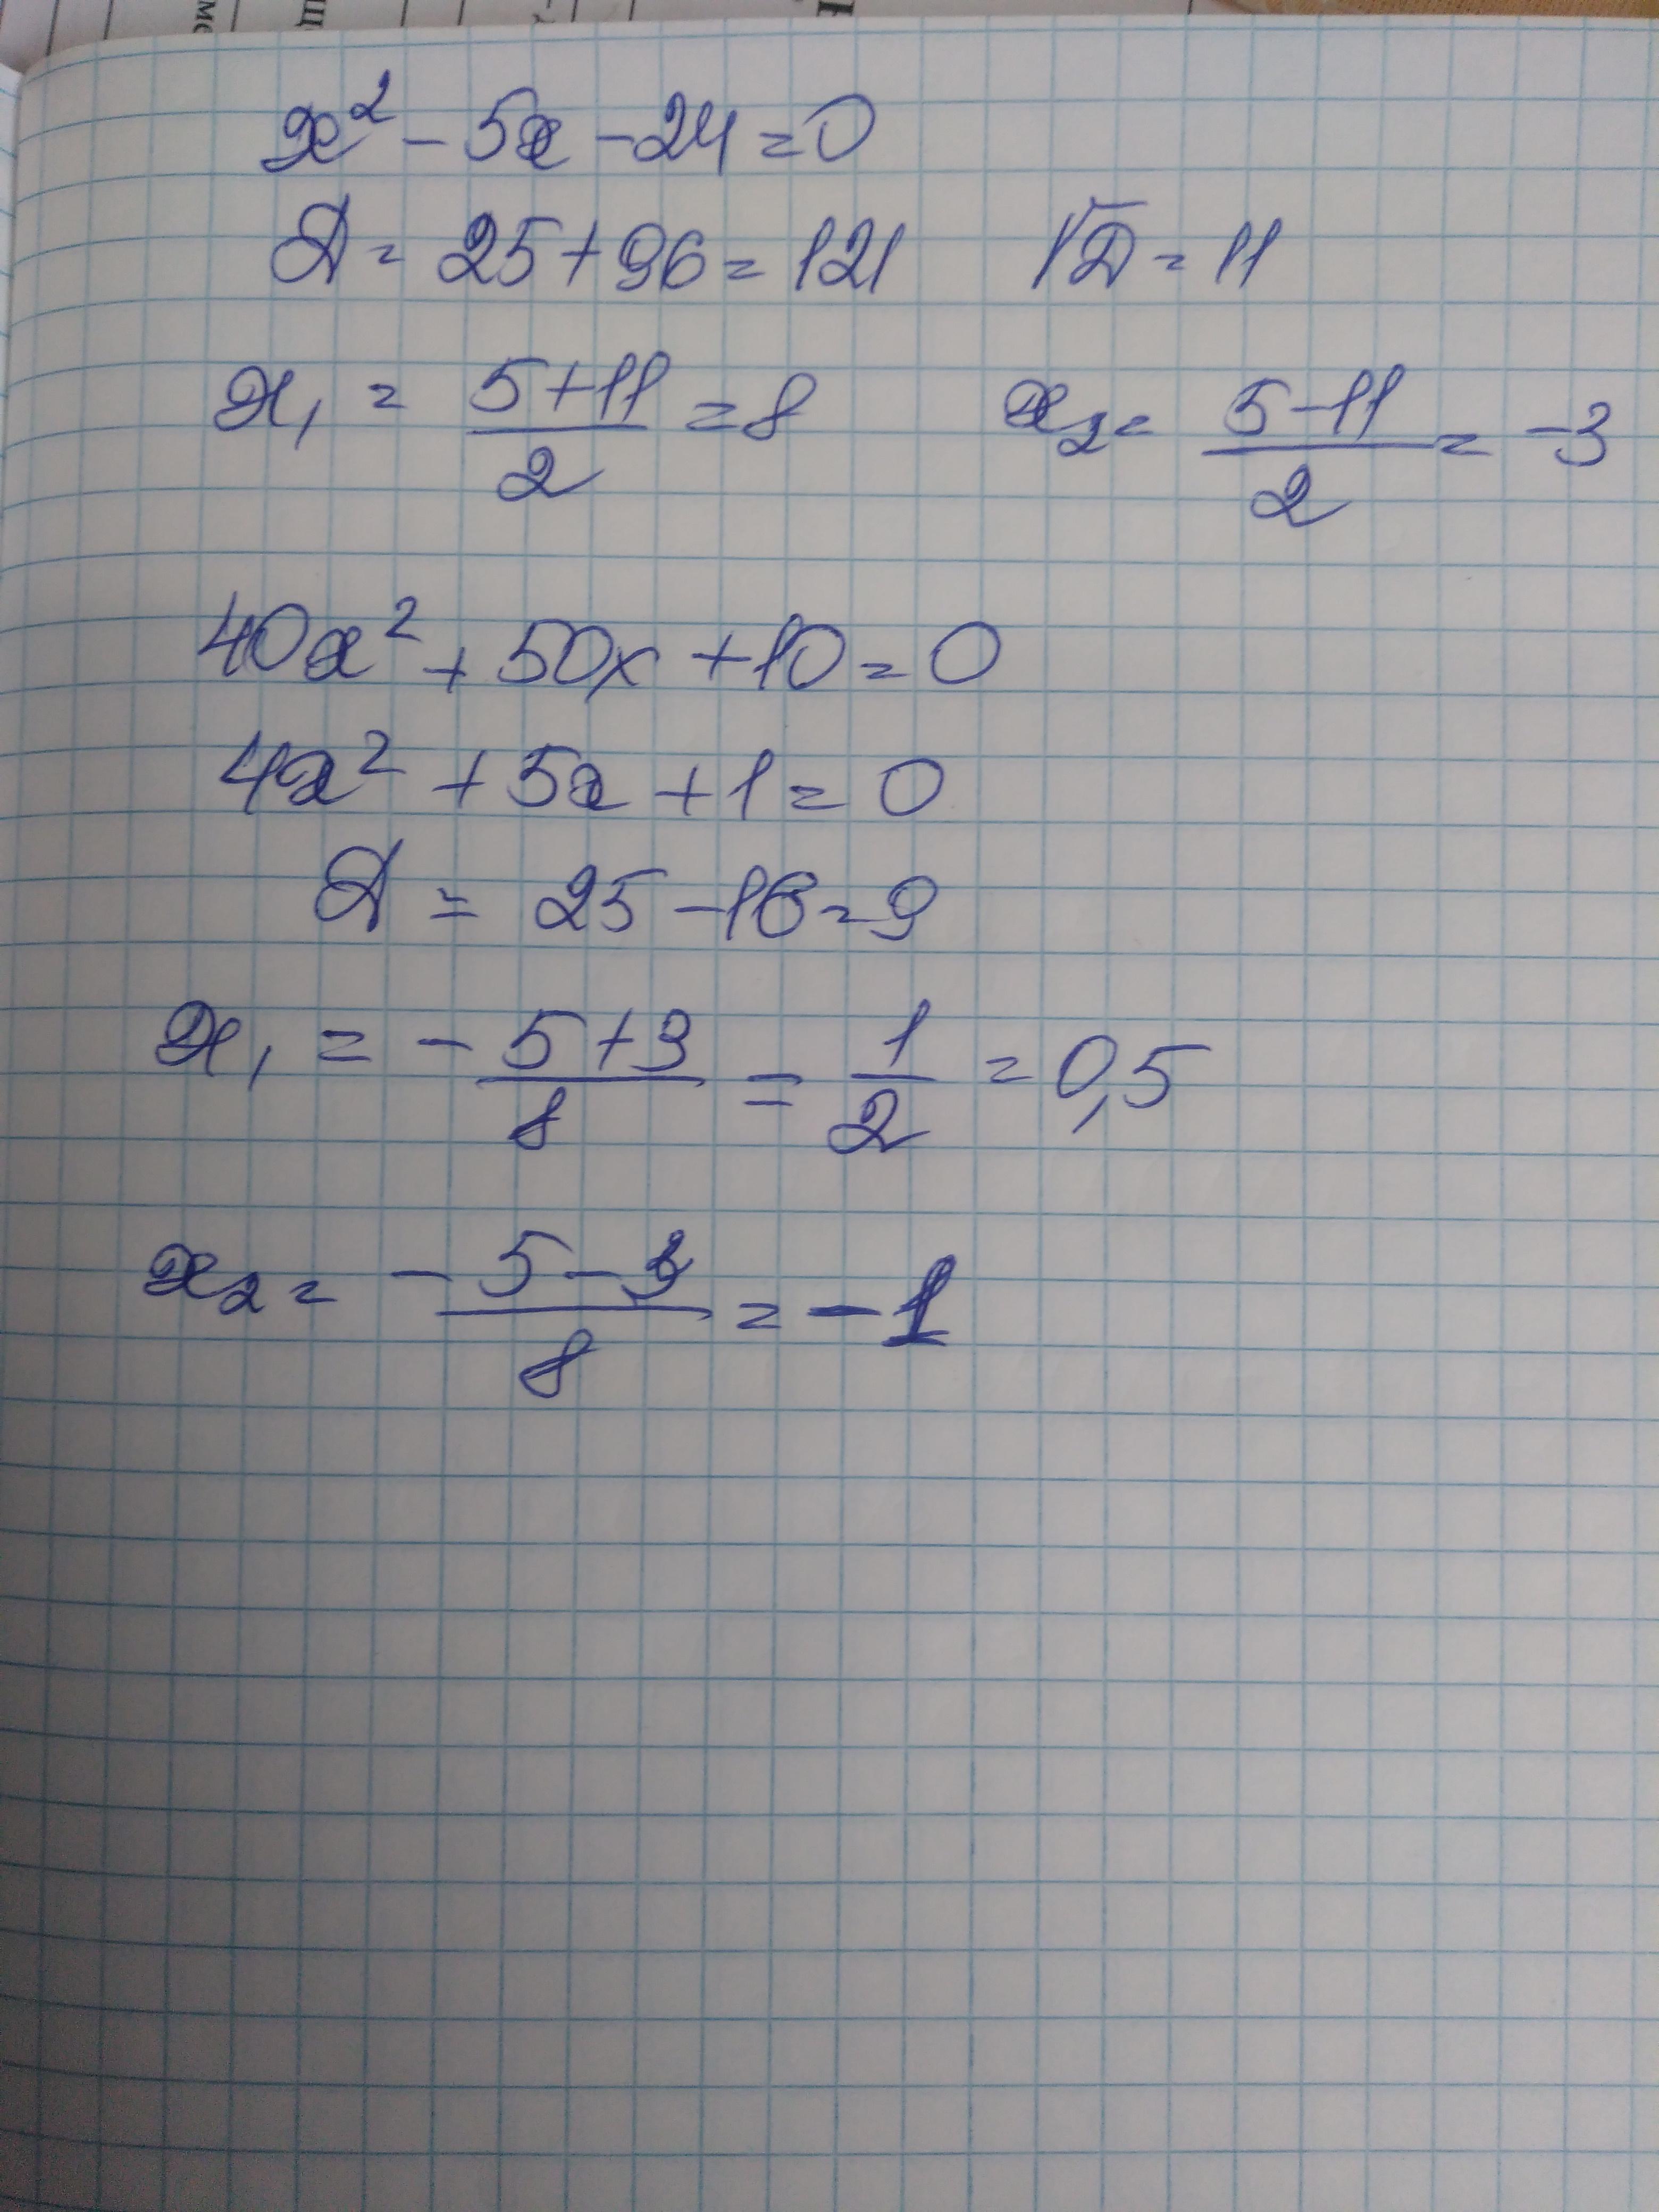 x² - 5x - 24 = 0
D = 25 + 96 = 121 √D = 11
x₁ = (5 + 11)/2 = 8 x₂ = (5 - 11)/2 = -3
40x² + 50x + 10 = 0
4x² + 5x + 1 = 0
D = 25 - 16 = 9
x₁ = -(5 + 3)/8 = 1/2 = 0,5
x₂ = -(5 - 3)/8 = -1